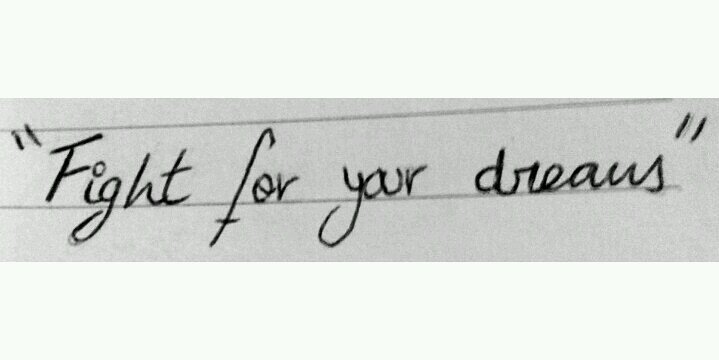 "Fight for your dreams"